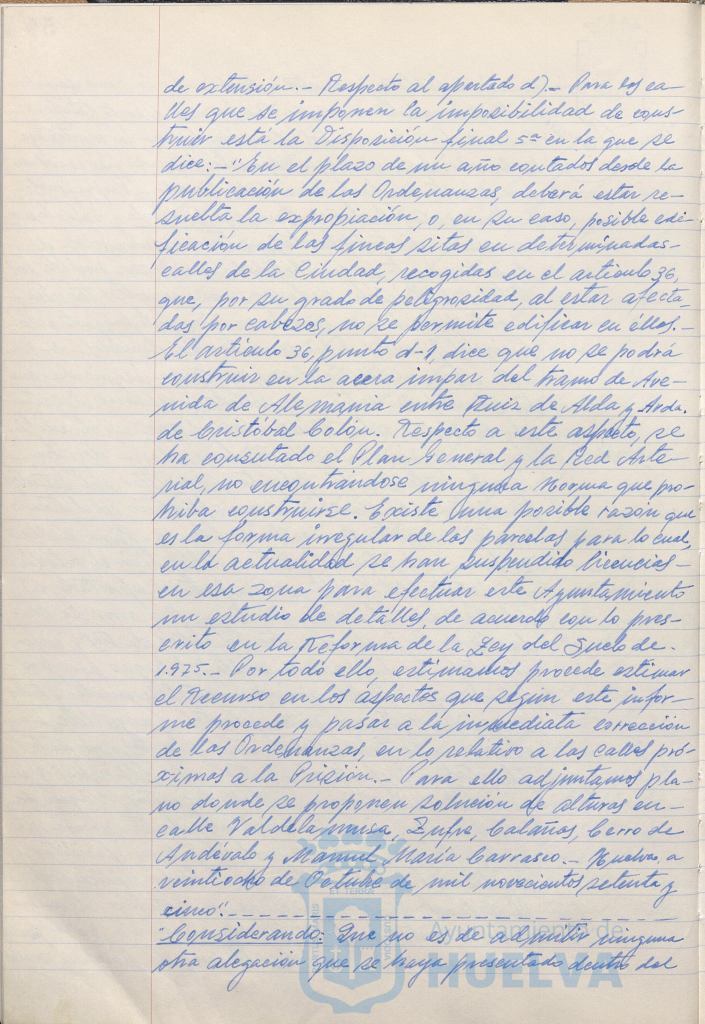 de extensión.- Respecto al apartado d).- Para las ca-
lles que se imponen la imposibilidad de cons-
truir está la Disposición final 5ª en la que se
dice:- "En el plazo de un año contados desde la
publicación de las Ordenanzas, deberá estar re-
suelta la expropiación, o, en su caso, posible edi-
ficación de las fincas sitas en determinadas-
calles de la Ciudad, recogidas en el artículo 36,
que, por su grado de peligrosidad, al estar afecta-
das por cabezos, no se permite edificar en éllas.-
El artículo 36, punto d-1, dice que no se podrá
construir en la acera impar del tramo de Ave-
nida de Alemania entre Ruiz de Alda y Avda.
de Cristóbal Colón. Respecto a este aspecto, se
ha consutado el Plan General y la Red Arte-
rial, no encontrándose ninguna Norma que pro-
hiba construirse. Existe una posible razón que
es la forma irregular de las parcelas para lo cual,
en la actualidad se han suspendido licencias-
en esa zona para efectuar este Ayuntamiento
un estudio de detalles, de acuerdo con lo pres-
crito en la Reforma de la Ley del Suelo de-
1.975.- Por todo ello, estimamos procede estimar
el Recurso en los áspectos que según este infor-
me procede y pasar a la inmediata corrección
de las Ordenanzas, en lo relativo a las calles pró-
ximas a la Prisión.- Para ello adjuntamos pla-
no donde se proponen solución de alturas en-
calle Valdelamusa, Zufre, Cabañas, Cerro de
Andévalo y Manuel María Carrasco.- Huelva, a
veintiocho de Octubre de mil novecientos setenta y
cinco".-
"Considerando: Que no es de admitir ninguna
otra alegación que se haya presentado dentro del
Ayuntamiento de
HUELVA